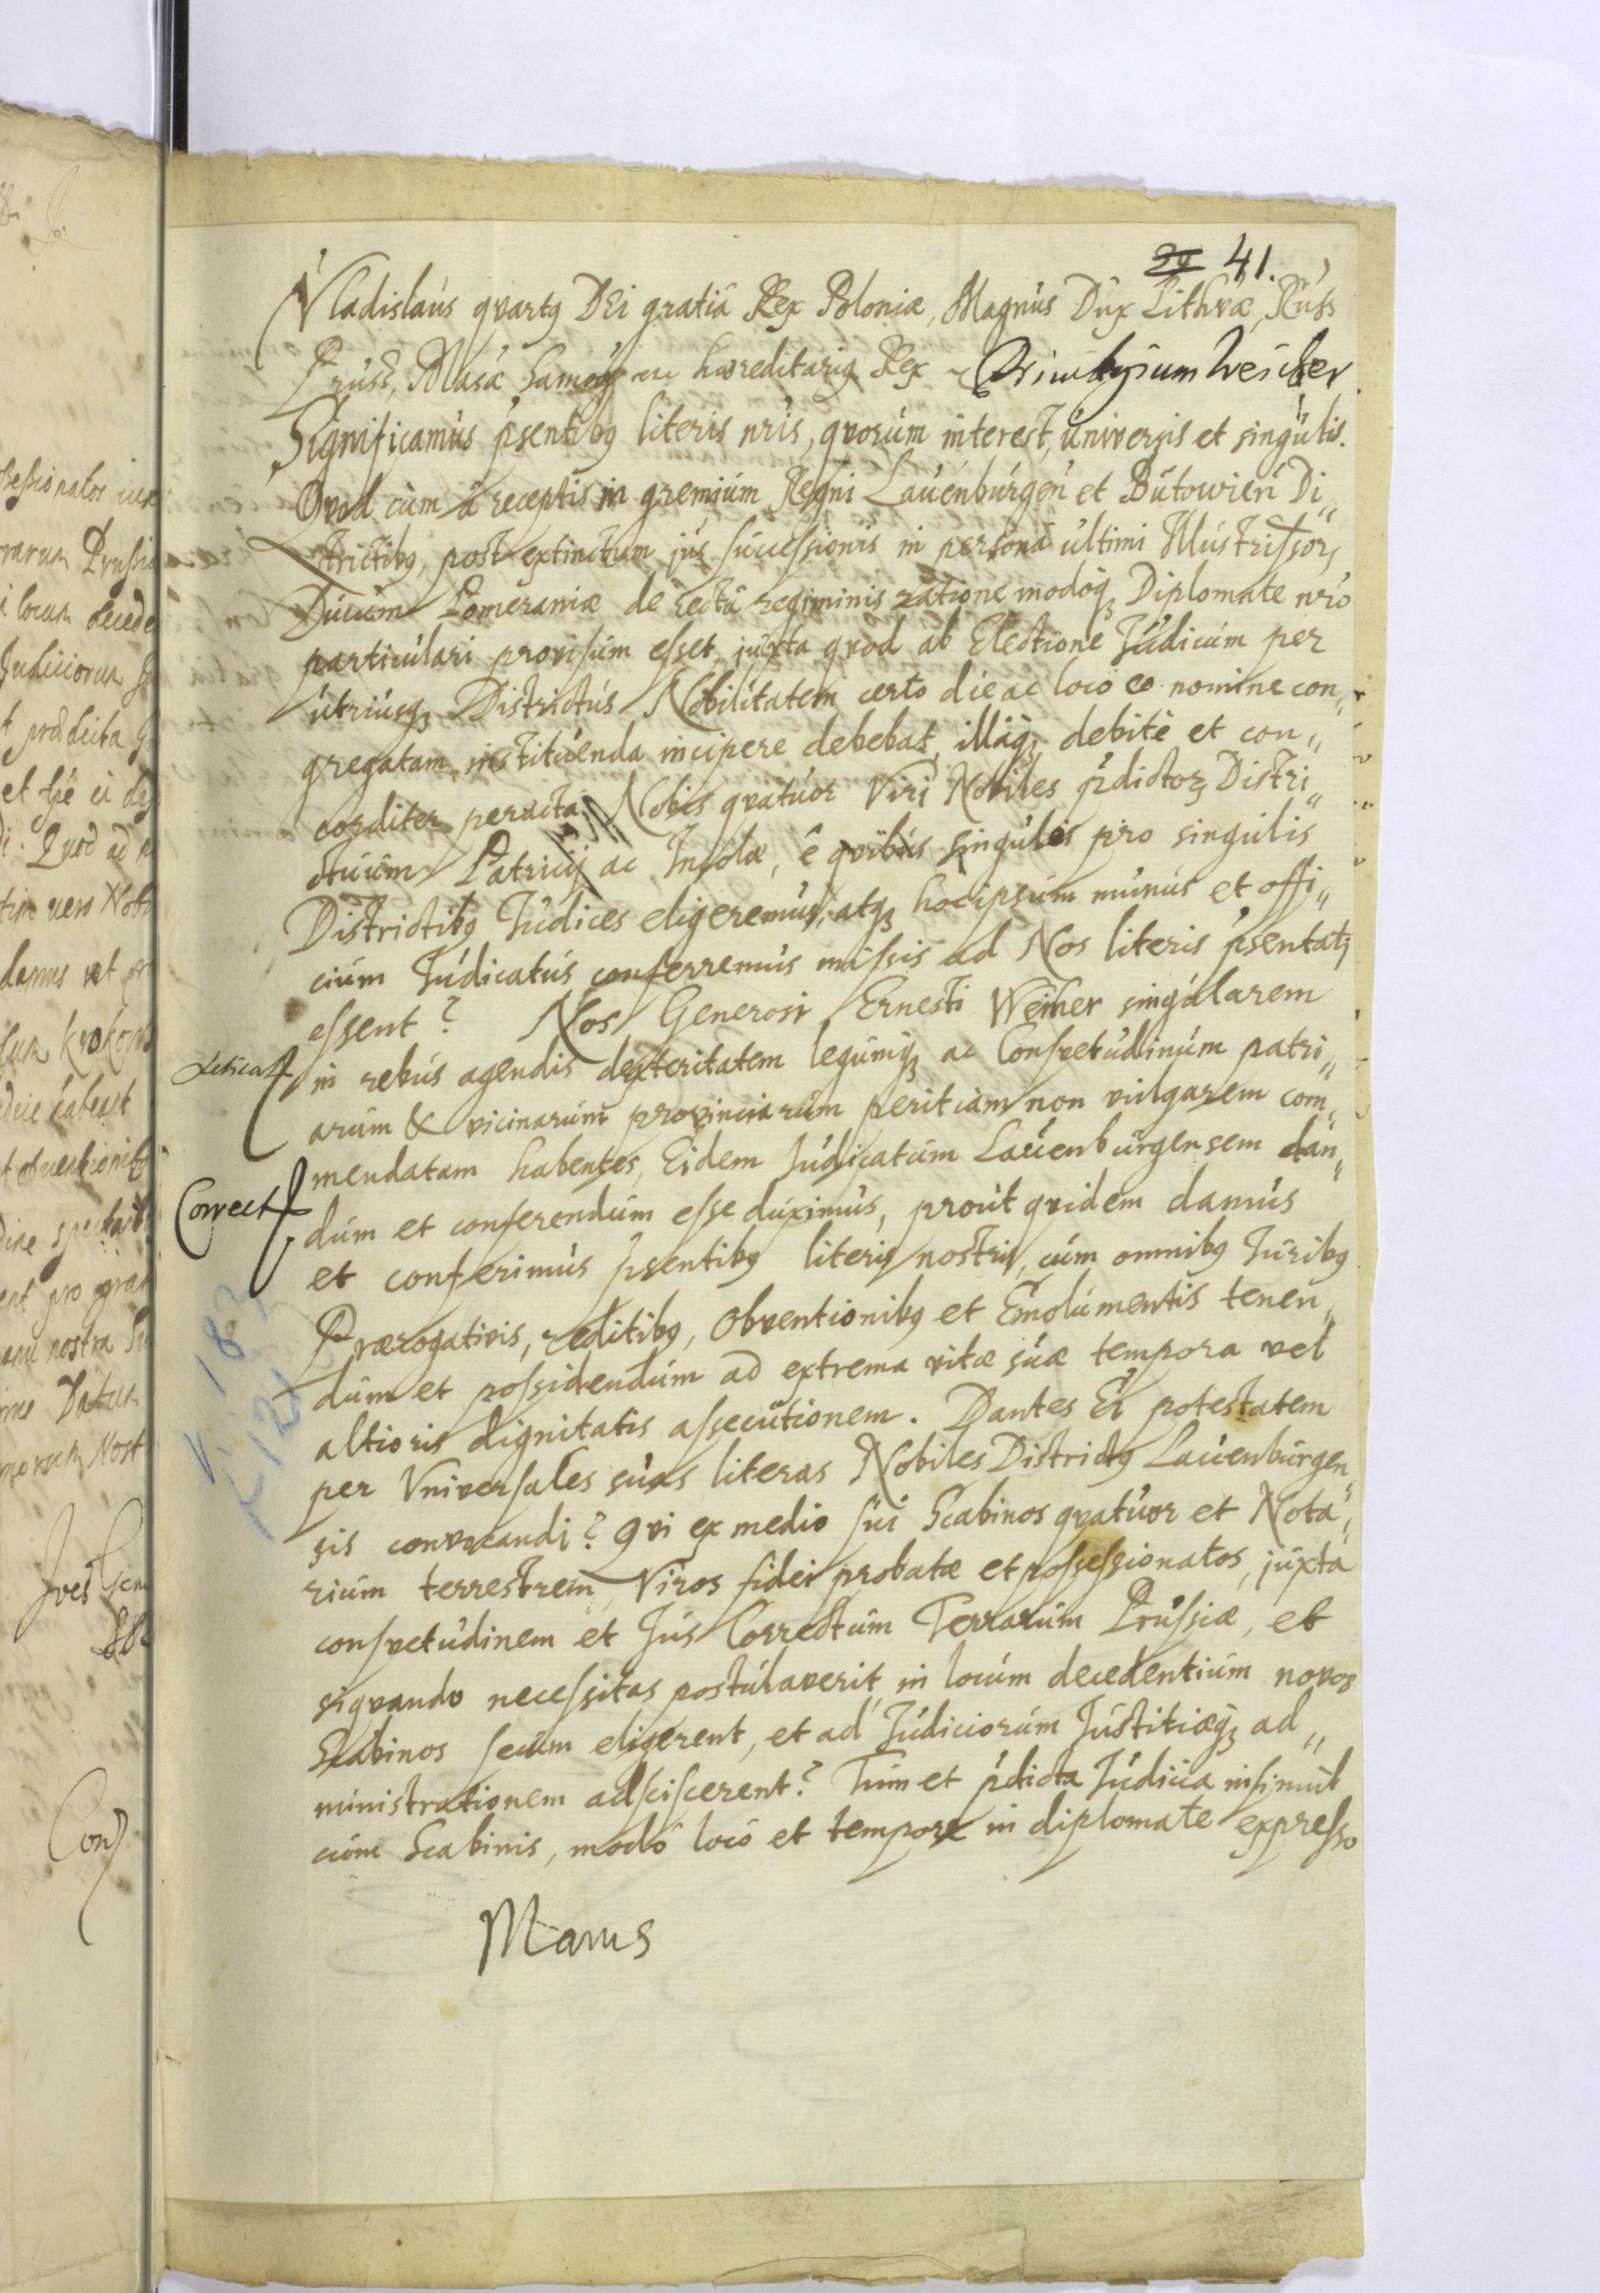 41.
Vladislaus quartq DEi gratiâ Rex Poloniæ, Magnus Dux Lithvæ, Russ
Pruss, Masæ, Samog. nec hæreditariq Rex
Significamus psentibq literis nris, qvorum interest, universis et singulis.
Qvod cùm â receptis in gremium Regni Lauenburgen et Butowien Di„
strictibq, post extinctum jus successionis in persona ultimi Illustrissor,
Ducum Pomeraniæ de rectâ regiminis ratione modoq, Diplomate nro
particulari provisum esset, juxta qvod ab Electione Judicum per
utriusq Districtus Nobilitatem certo die ac loco eo nomine con„
gregatam, instituenda incipere debebat, illaq, debitè et con„
corditer peracta, Nobis qvatuor Viri Nobiles pdictor, Distri„
ctuum Patricij ac Incolæ, ê qvibus singulos pro singulis
Districtibq Judices eligeremus, atq hocipsum munus et offi„
cium Judicatus conferremus missis ad Nos literis psentati
essent? Nos Generosi Ernesti Weiher singularem
in rebus agendis dexteritatem legumq ac Consvetudinum patri„
arum & vicinarum provinciarum peritiam non vulgarem com„
mendatam habentes, Eidem Judicatum Lauenburgensem dan„
Correct
dum et conferendum esse duximus, prout qvidem damus
et conferimus psentibq literis nostris, cum omnibq Juribq
Prærogativis, reditibq, obventionibq et Emolumentis tenen„
dum et possidendum ad extrema vitæ suæ tempora vel
altioris dignitatis assecutionem. Dantes Ei potestatem
per Vniversales suas literas Nobiles Districtq Lauenburgen„
sis convocandi? qvi ex medio sui Scabinos qvatuor et Nota„
rium terrestrem, Viros fidei probatæ et possessionatos, juxta
consvetudinem et Jus Correctum Terrarum Prussiæ, et
siqvando necessitas postulaverit, in locum decedentium novos
Scabinos secum eligerent, et ad Judiciorum Justitiæq ad„
ministrationem adsciscerent? Tum et pdicta Judicia insimul
cum Scabinis, modo loco et tempore in diplomate expresso
Marus